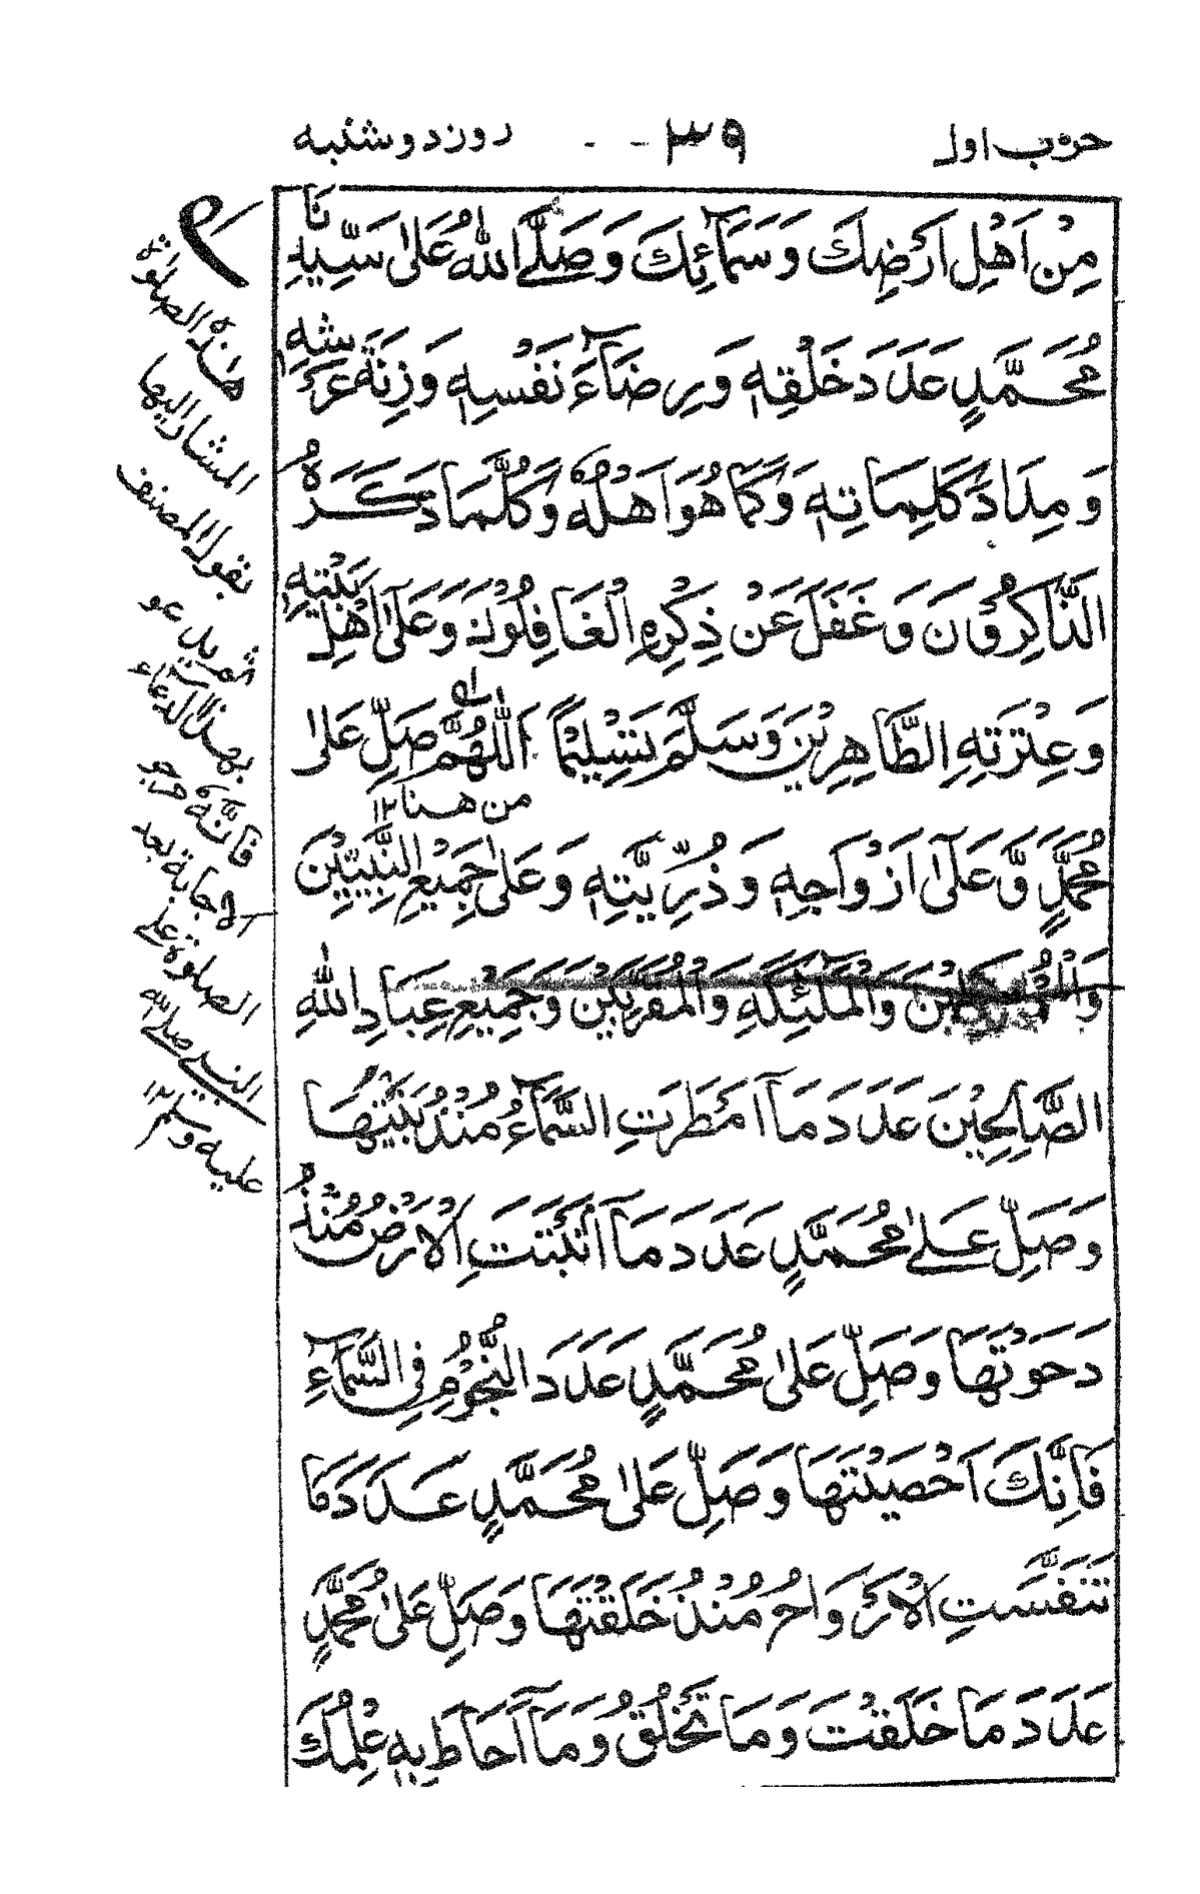 حزب اول ۳۹ روز دوشنبه
مِنْ اَهْلِ اَرَضِكَ وَسَمَآئِكَ وَصَلَّى اللّٰهُ عَلٰى سَيِّدِنَا
مُحَمَّدٍ عَدَدَ خَلْقِهٖ وَرِضَآءَ نَفْسِهٖ وَزِنَةَ عَرْشِهٖ
وَمِدَادَ كَلِمَاتِهٖ وَكَمَا هُوَ اَهْلُهٗ وَكُلَّمَا ذَكَرَهُ
الذَّاكِرُوْنَ وَغَفَلَ عَنْ ذِكْرِهِ الْغَافِلُوْنَ وَعَلٰٓى اَهْلِ بَيْتِهٖ
وَعِتْرَتِهِ الطَّاهِرِيْنَ وَسَلَّمَ تَسْلِيْمًا اَللّٰهُمَّ صَلِّ عَلٰى
من هنا ۱۲
مُحَمَّدٍ وَّعَلٰٓى اَزْوَاجِهٖ وَذُرِّيَّتِهٖ وَعَلٰى جَمِيْعِ النَّبِيِّيْنَ
وَالْمُرْسَلِيْنَ وَالْمَلٰٓئِكَةِ وَالْمُقَرَّبِيْنَ وَجَمِيْعِ عِبَادِ اللّٰهِ
الصَّالِحِيْنَ عَدَدَ مَآ اَمْطَرَتِ السَّمَآءُ مُنْذُ بَنَيْتَهَا
وَصَلِّ عَلٰى مُحَمَّدٍ عَدَدَ مَآ اَنْبَتَتِ الْاَرْضُ مُنْذُ
دَحَوْتَهَا وَصَلِّ عَلٰى مُحَمَّدٍ عَدَدَ النُّجُوْمِ فِى السَّمَآءِ
فَاِنَّكَ اَحْصَيْتَهَا وَصَلِّ عَلٰى مُحَمَّدٍ عَدَدَ مَا
تَنَفَّسَتِ الْاَرْوَاحُ مُنْذُ خَلَقْتَهَا وَصَلِّ عَلٰى مُحَمَّدٍ
عَدَدَ مَا خَلَقْتَ وَمَا تَخْلُقُ وَمَآ اَحَاطَ بِهٖ عِلْمُكَ
هذه الصلوة
المشار اليها
بقول المصنف
ثم يدعو
بهذا الدعاء
فانه مرجو
الاجابة بعد
الصلوة على
النبي صلى الله
عليه وسلم ۱۲